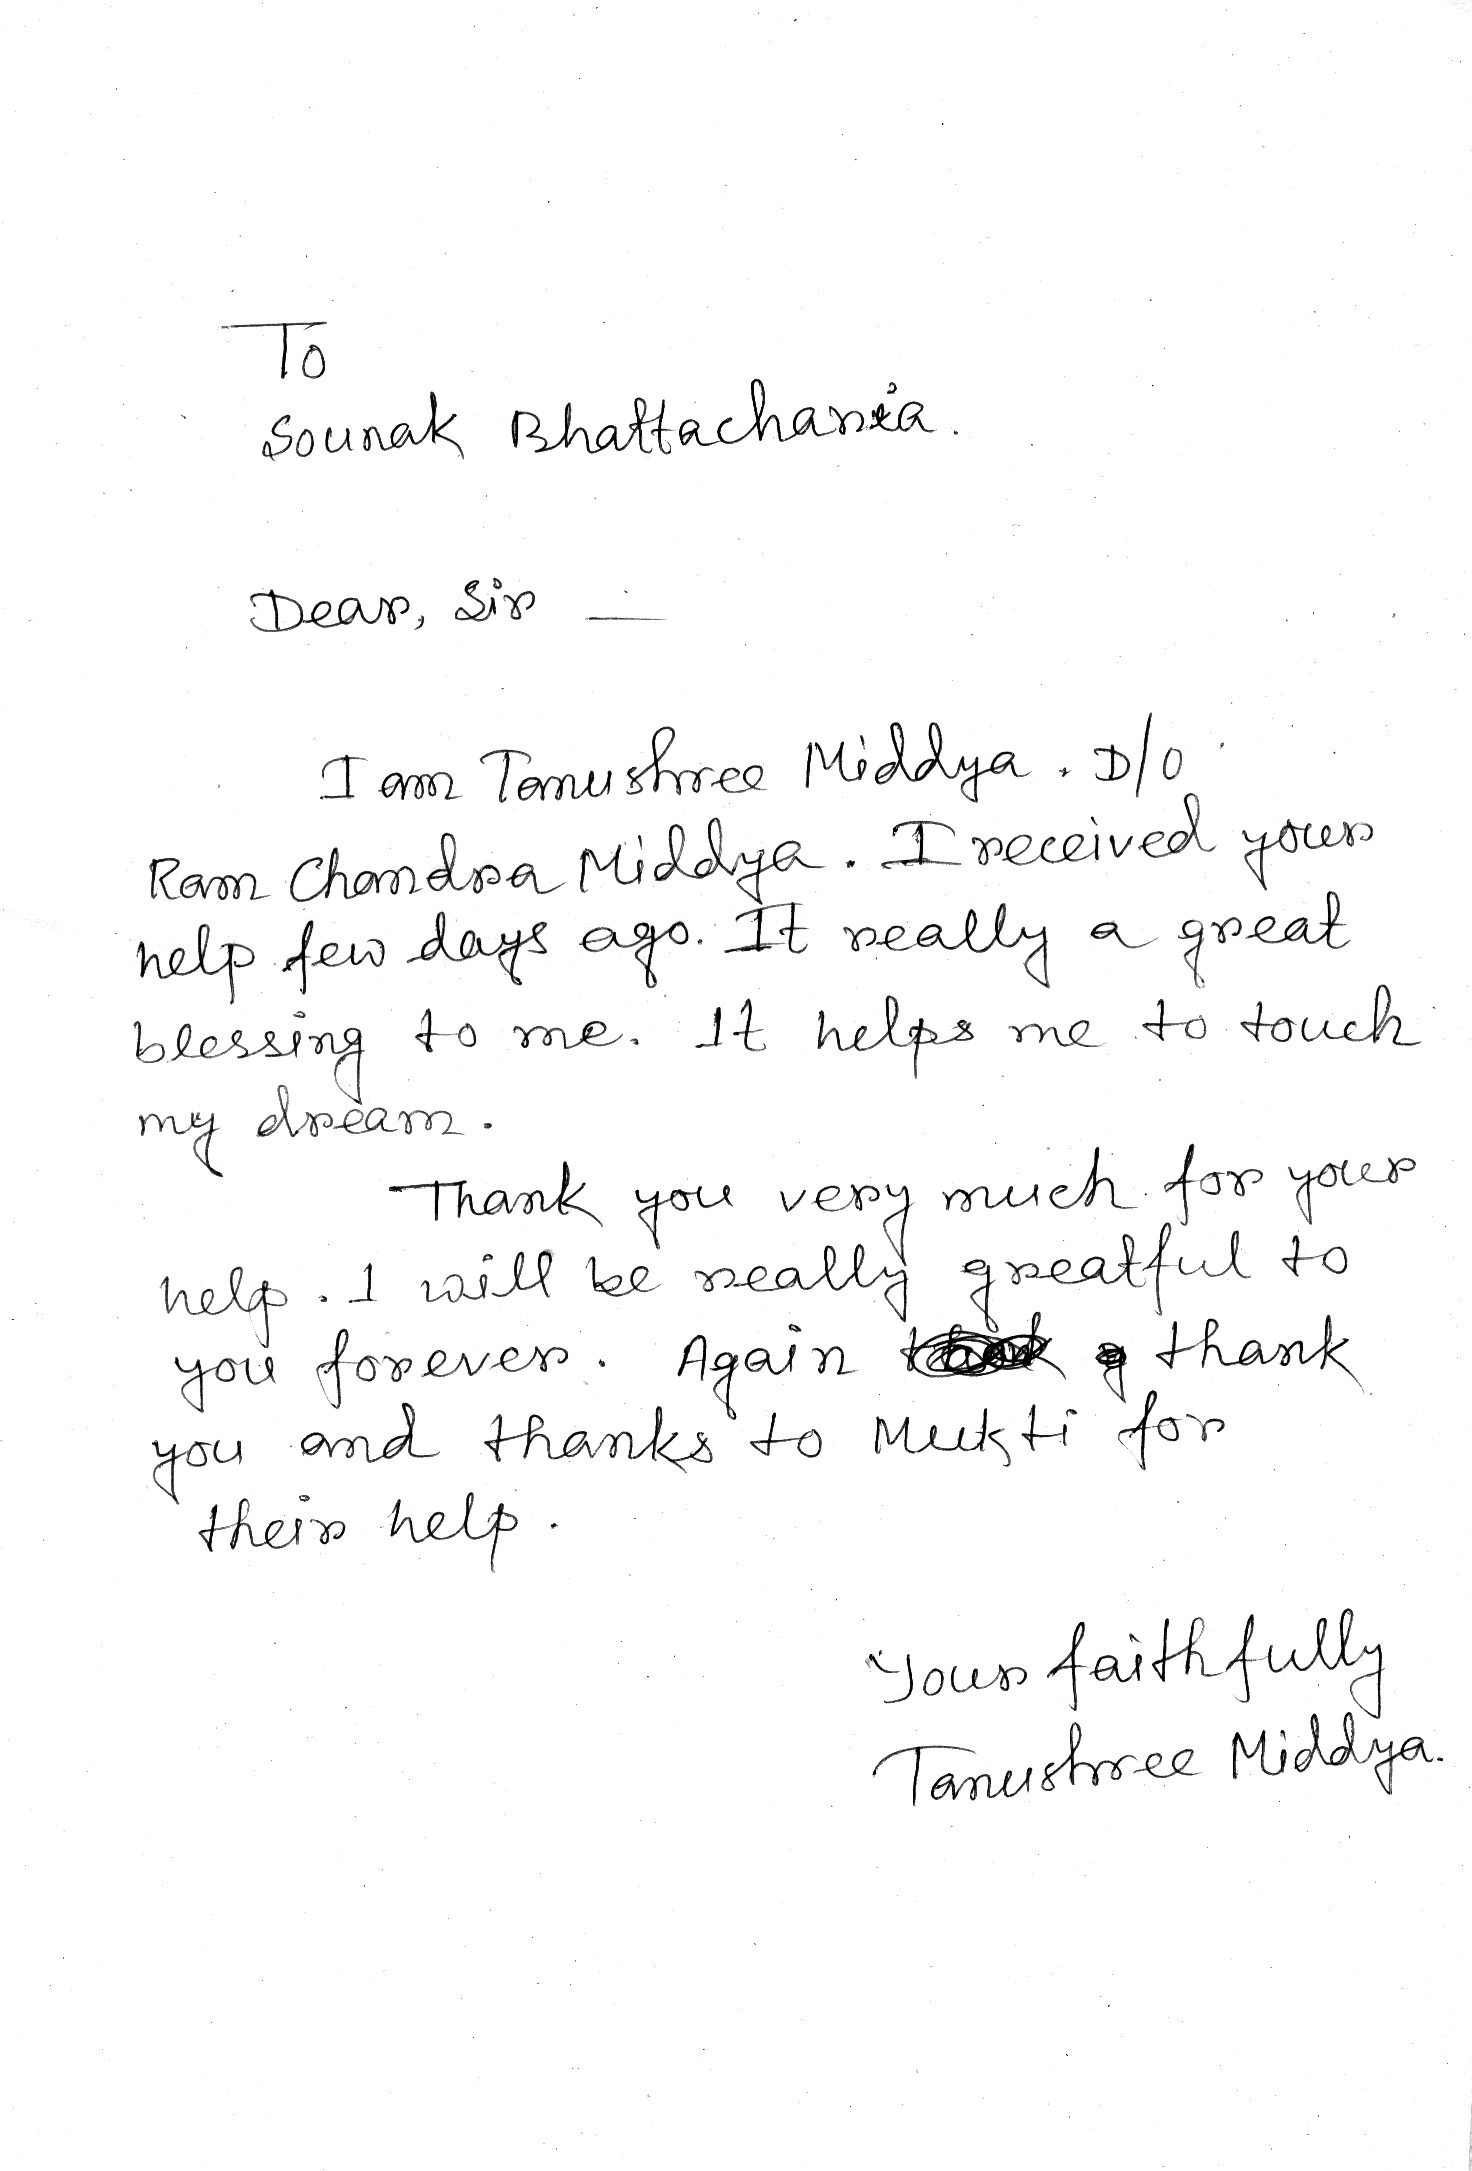 To
Sounak Bhattacharia.
Dear, Sir —
I am Tanushree Middya. D/O
Ram Chandra Middya. I received your
help few days ago. It really a great
blessing to me. It helps me to touch
my dream.
Thank you very much for your
help. I will be really greatful to
you forever. Again thank
you and thanks to Mukti for
their help.
Your faithfully
Tanushree Middya.